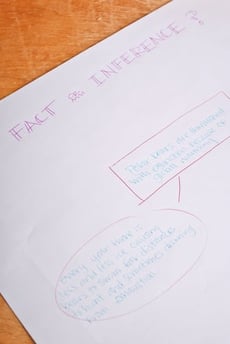 FACT or INFERENCE ?
Polar bears are threatened
with extinction because of
global warming.
Every year there is
less and less ice causing
bears to swim far distances
to hunt and sometimes drowning
from exhaustion.